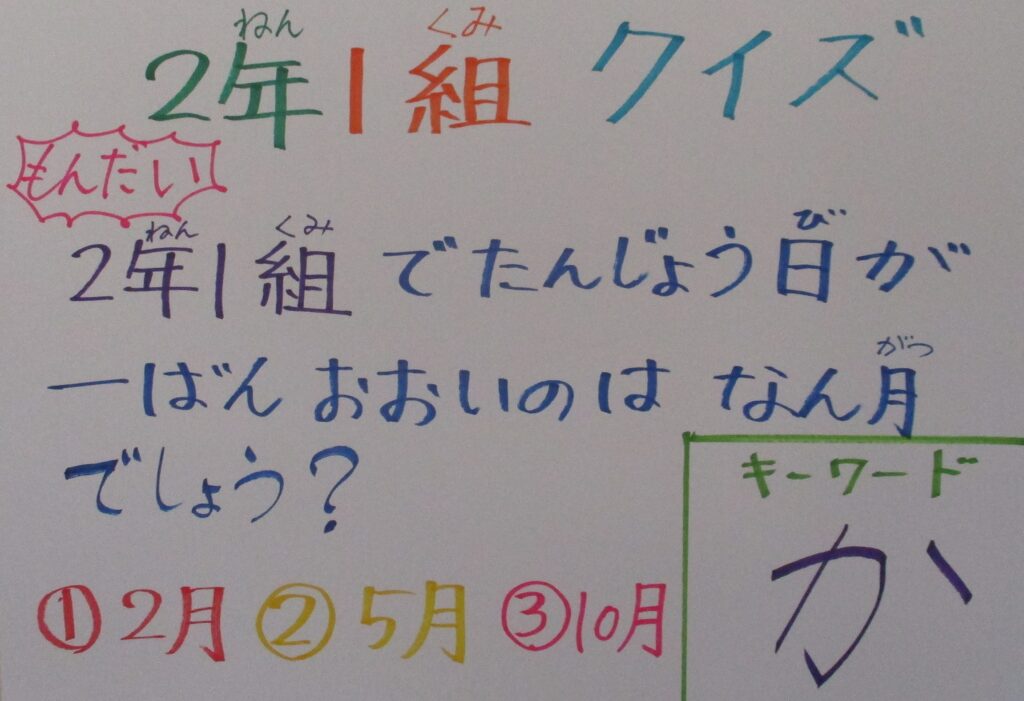 ねん くみ
2年1組 クイズ
もんだい
ねん くみ び
2年1組でたんじょう日が
がつ
一ばんおおいのは なん月
でしょう?
キーワード
か
①2月 ②5月 ③10月